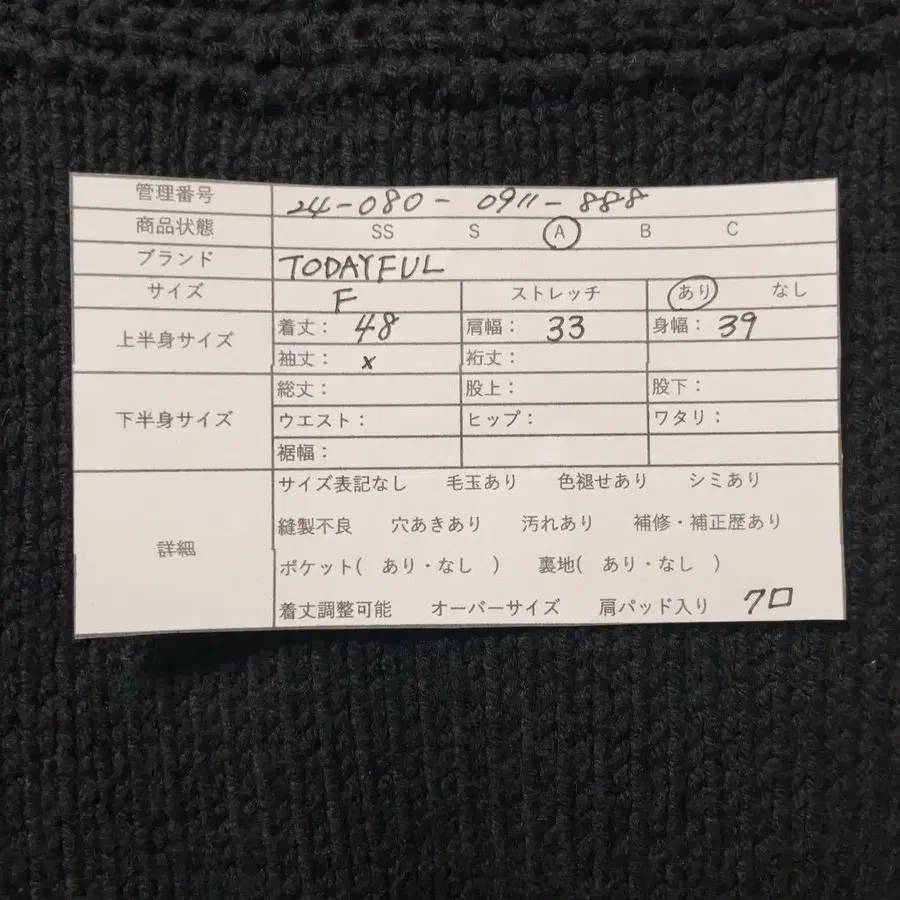 管理番号 24-080-0911-888
商品状態 SS S A B C
ブランド TODAYFUL
サイズ F ストレッチ あり なし
上半身サイズ 着丈: 48 肩幅: 33 身幅: 39
袖丈: x 裄丈:
下半身サイズ 総丈: 股上: 股下:
ウエスト: ヒップ: ワタリ:
裾幅:
詳細 サイズ表記なし 毛玉あり 色褪せあり シミあり
縫製不良 穴あきあり 汚れあり 補修・補正歴あり
ポケット( あり・なし ) 裏地( あり・なし )
着丈調整可能 オーバーサイズ 肩パッド入り クロ